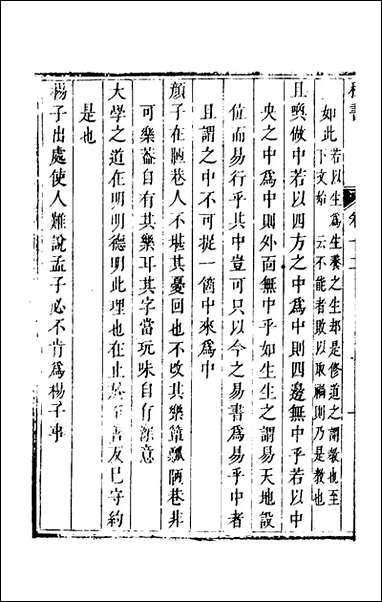 書 卷十二 一
如此 若以生為生養之生却是修道之謂教也至
下文始 云不能者敗以取禍則乃是教也
且喚做中若以四方之中為中則四邊無中乎若以中
央之中為中則外面無中乎如生生之謂易天地設
位而易行乎其中豈可只以今之易書為易乎中者
且謂之中不可捉一箇中來為中
顏子在陋巷人不堪其憂回也不改其樂簞瓢陋巷非
可樂葢自有其樂耳其字當玩味自有深意
大學之道在明明德明此理也在止於至善反巳守約
是也
楊子出處使人難說孟子必不肯爲楊子事